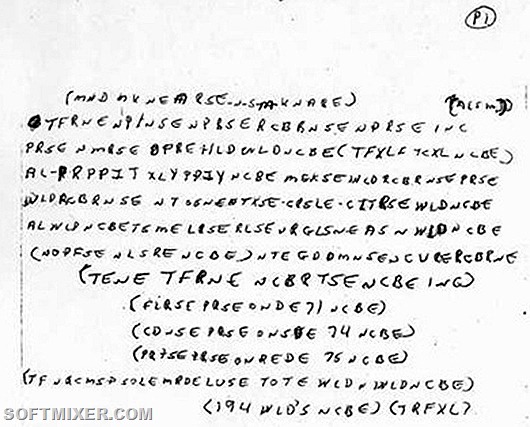 P1
(MND MKNEARSE-N-S-TA-KNARE) (ALSM)
TFRNE NPINSENPBSERCBRNSE NPRSE INC
PRSE NMRSE OPREHLD WLD NCBE (TFXLF TCXL NCBE)
AL-PRPPIT XLY PPIY NCBE MGKSE WLDRCBRNSE PRSE
WLDRCBRNSE NTOSNENTXSE-CRSLE-CITRSE WLD NCBE
ALWLD NCBE TSMELRSERLSEURGLSNEASN WLD NCBE
(NOPFSE NLSRE NCBE) NTEGDDMNSENCURERCBRNE
(TENE TFRNE NCBRTSE NCBE INC)
(FIRSE PRSE ONDE 71 NCBE)
(CDNSE PRSE ONSDE 74 NCBE)
(PRTSE PRSE ONREDE 75 NCBE)
(TFNRCMSPSOLEMRDELUSE TOTE WLD N WLD NCBE)
(194 WLD'S NCBE) (TRFXL)
SOFTMIXER.COM